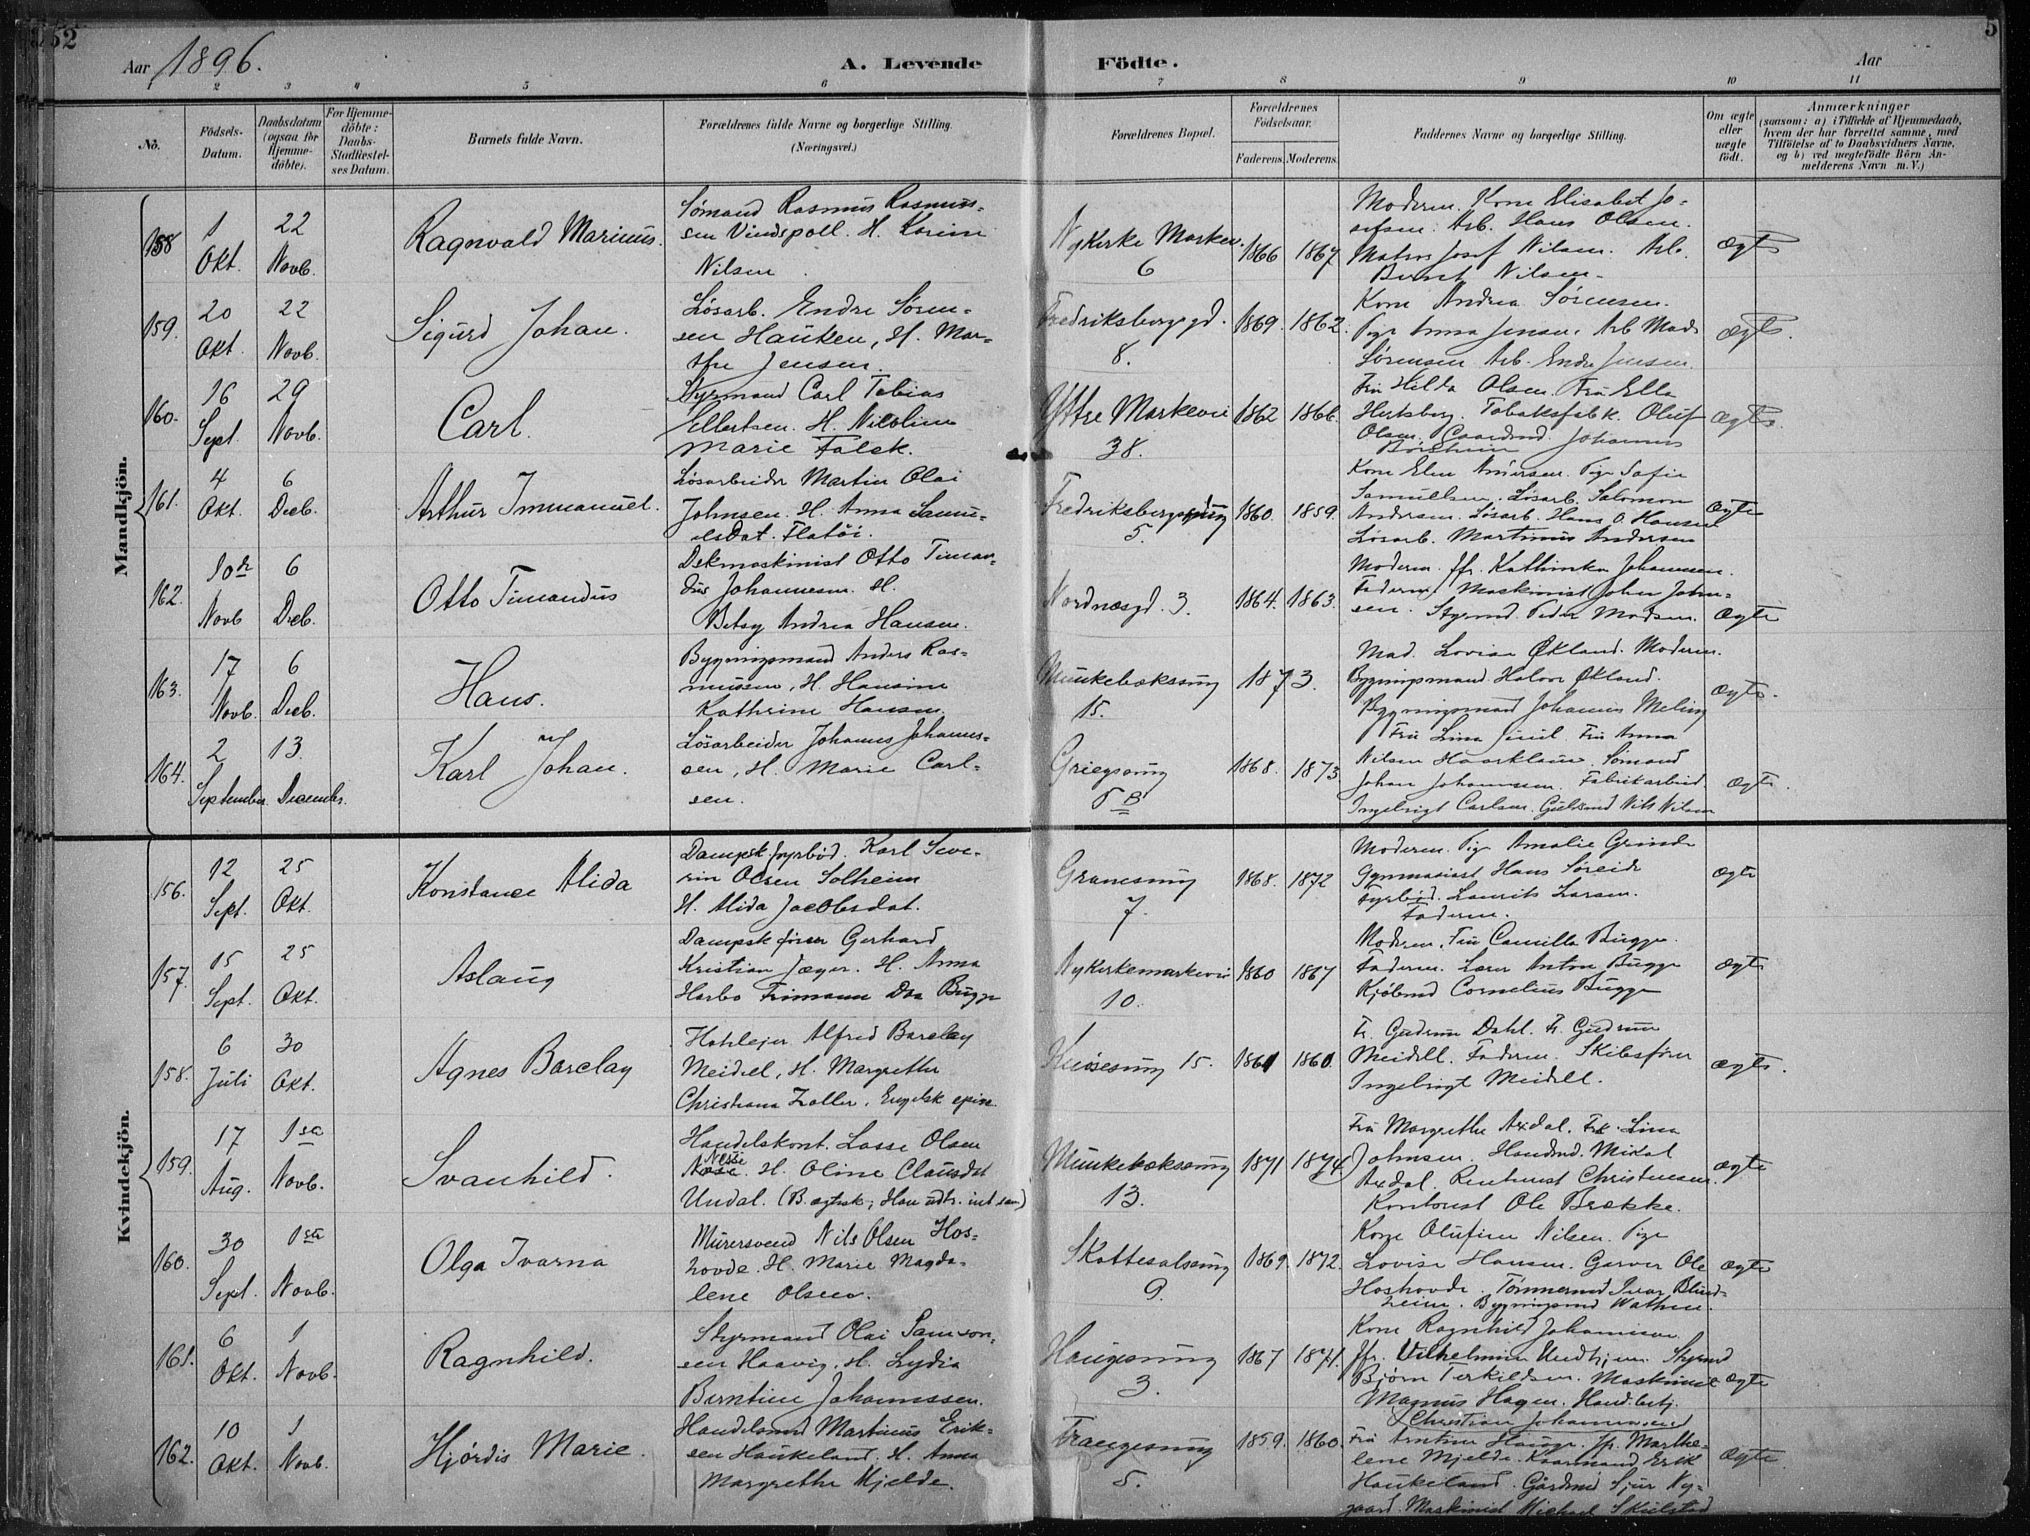 52
5
Aar 1896.
A. Levende
Födte.
Aar
1 2 3 4 5 6 7 8 9 10 11
No.
Födsels-
Datum.
Daabsdatum
(ogsaa for
Hjemme-
döbte).
For Hjemme-
döbte:
Daabs-
Stadfæstel-
ses Datum.
Barnets fulde Navn.
Forældrenes fulde Navne og borgerlige Stilling.
(Næringsvei.)
Forældrenes Bopæl.
Forældrenes
Födselsaar.
Faderens. Moderens.
Faddernes Navne og borgerlige Stilling.
Om ægte
eller
uægte
födt.
Anmærkninger
(saasom: a) i Tilfælde af Hjemmedaab,
hvem der har forrettet samme, med
Tilföielse af to Daabsvidners Navne,
og b) ved uægtefödte Börn An-
melderens Navn m. V.)
Mandkjön.
158
1
Okt.
22
Novb.
Ragnvald Marinus.
Sömand Rasmus Rasmus-
sen Vindspoll. H. Karine
Nilsen
Nykirke Markev.
6
1866 1867
Moderen. Kone Elisabet Jo-
sefsen. Arb. Hans Olsen.
Matros Josef Nilsen. Arb.
Bernt Nilsen.
Ægte
159.
20
Okt.
22
Novb.
Sigurd Johan.
Løsarb. Endre Søren-
sen Hauken, H. Mar-
the Jensen.
Fredriksbergsgd.
8.
1869. 1862.
Kone Andrea Sørensen.
Pige Anna Jensen. Arb. Mads
Sørensen Arb. Endre Jensen
Ægte.
160.
16
Sept.
29
Novb.
Carl.
Styrmand Carl Tobias
Ellertsen. H. Nicoline
Marie Falck.
Yttre Markevei
38.
1862 1866.
Fru Hilda Olsen. Fru Ella
Hertzberg. Tobaksfabk. Oluf
Olsen. Johannes
Ægte.
161.
4
Okt.
6
Decb.
Arthur Immanuel.
Løsarbeider Martin Olai
Johnsen. H. Anna Samu-
elsdat. Flatöi.
Fredriksbergsgd
5.
1860. 1859.
Kone Elen Andersen. Pige Sofie
Samuelsen. Løsarb. Salomon
Andersen. Løsarb. Hans O. Hansen
Løsarb. Martinus Andersen
Ægte
162.
10de
Novb
6
Decb.
Otto Timandus
Dekmaskinist Otto Timan-
dus Johannesen. H.
Betsy Andrea Hansen.
Nordnæsgd. 3.
1864. 1863.
Moderen. Jfr. Kathinka Johannesen.
Faderen. Maskinist John John-
sen. Styrmd. Peder Madsen.
Ægte
163.
17
Novb.
6
Decb.
Hans.
Bygningsmand Anders Ras-
mussen, H. Hansine
Kathrine Hansen.
Munkebæksmug
15.
1873.
Mad. Lovise Økland. Moderen.
Bygningsmand Halvor Økland.
Bygningsmand Johannes Meling
Ægte.
164.
2
September
13.
December.
Karl Johan.
Løsarbeider Johannes Johannes-
sen, H. Marie Carl-
sen.
Griegsmug
5 B
1868. 1873.
Fru Lina Juul. Fru Anna
Nilsen Haaeklau. Sömand
Johan Johannessen. Fabrikarbeid.
Ingebrigt Carlsen. Nils Nilsen
Ægte.
Kvindekjön.
156.
12
Sept.
25
Okt.
Konstance Alida
Dampsk.fyrbød. Karl Seve-
rin Olsen Solheim
H. Alida Jacobsdat.
Granesmug
7.
1868. 1872
Moderen. Pige Amalie Grinde
Gymnasiast Hans Søreide
Fyrbød. Laurits Larsen.
Faderen.
Ægte
157.
15
Sept.
25
Okt.
Aslaug
Dampsk.fører Gerhard
Kristian Jæger. H. Anna
Harbo Frimann Daa Bugge
Nykirkemarkevei
10.
1860 1867
Moderen. Fru Camilla Bugge.
Faderen. Lærer Anton Bugge
Kjøbmd Cornelius Bugge
Ægte
158.
6
Juli
30
Okt.
Agnes Barclay
Alfred Barclay
Meidell, H. Margrethe
Christiana Zoller. Engelsk
Knøsesmug 15.
1861 1860.
Fr. Gudrun Dahl. Fr. Gudrun
Meidell. Faderen. Skibsfører
Ingebrigt Meidell.
Ægte.
159.
17
Aug.
1ste
Novb.
Svanhild.
Handelskont. Lasse Olsen
Næsse. H. Oline Clausdat
Undal.
Munkebæksmug
13.
1871 1874
Fru Margrethe Axdal. Frk. Lina
Johnsen. Handmd. Mikal
Axdal. Christensen.
Kontorist Ole Brække.
Ægte
160.
30
Sept.
1ste
Novb.
Olga Ivarna
Murersvend Nils Olsen Hos-
hovde. H. Marie Magda-
lene Olsen.
Skottesalsmug
9.
1869. 1872.
Kone Olufine Nilsen. Pige
Lovise Hansen. Garver Ole
Hoshovde. Tømmermd Ivar Blind-
heim. Bygningsmd Wathne.
Ægte
161.
6
Okt.
1
Novb.
Ragnhild.
Styrmand Olai Samson-
sen Haavig. H. Lydia
Berntine Johannessen.
Haugesmug
3.
1867 1871.
Kone Ragnhild Johannesen
Jfr. Vilhelmine Undhjem. Styrmd
Bjørn Terkildsen. Maskinist
Magnus Hagen. Hand.betj.
Christian Johannessen
Ægte
162.
10
Okt.
1
Novb.
Hjørdis Marie.
Handelsmd Martinus Erik-
sen Haukeland. H. Anna
Margrethe Mjelde.
Trangesmug
5.
1859. 1860.
Fru Hauge. Jfr. Marthe-
lene Mjelde. Erik
Haukeland. Gårdmd Sjur Ny-
gaard. Maskinist Michael Skielstad
Ægte.